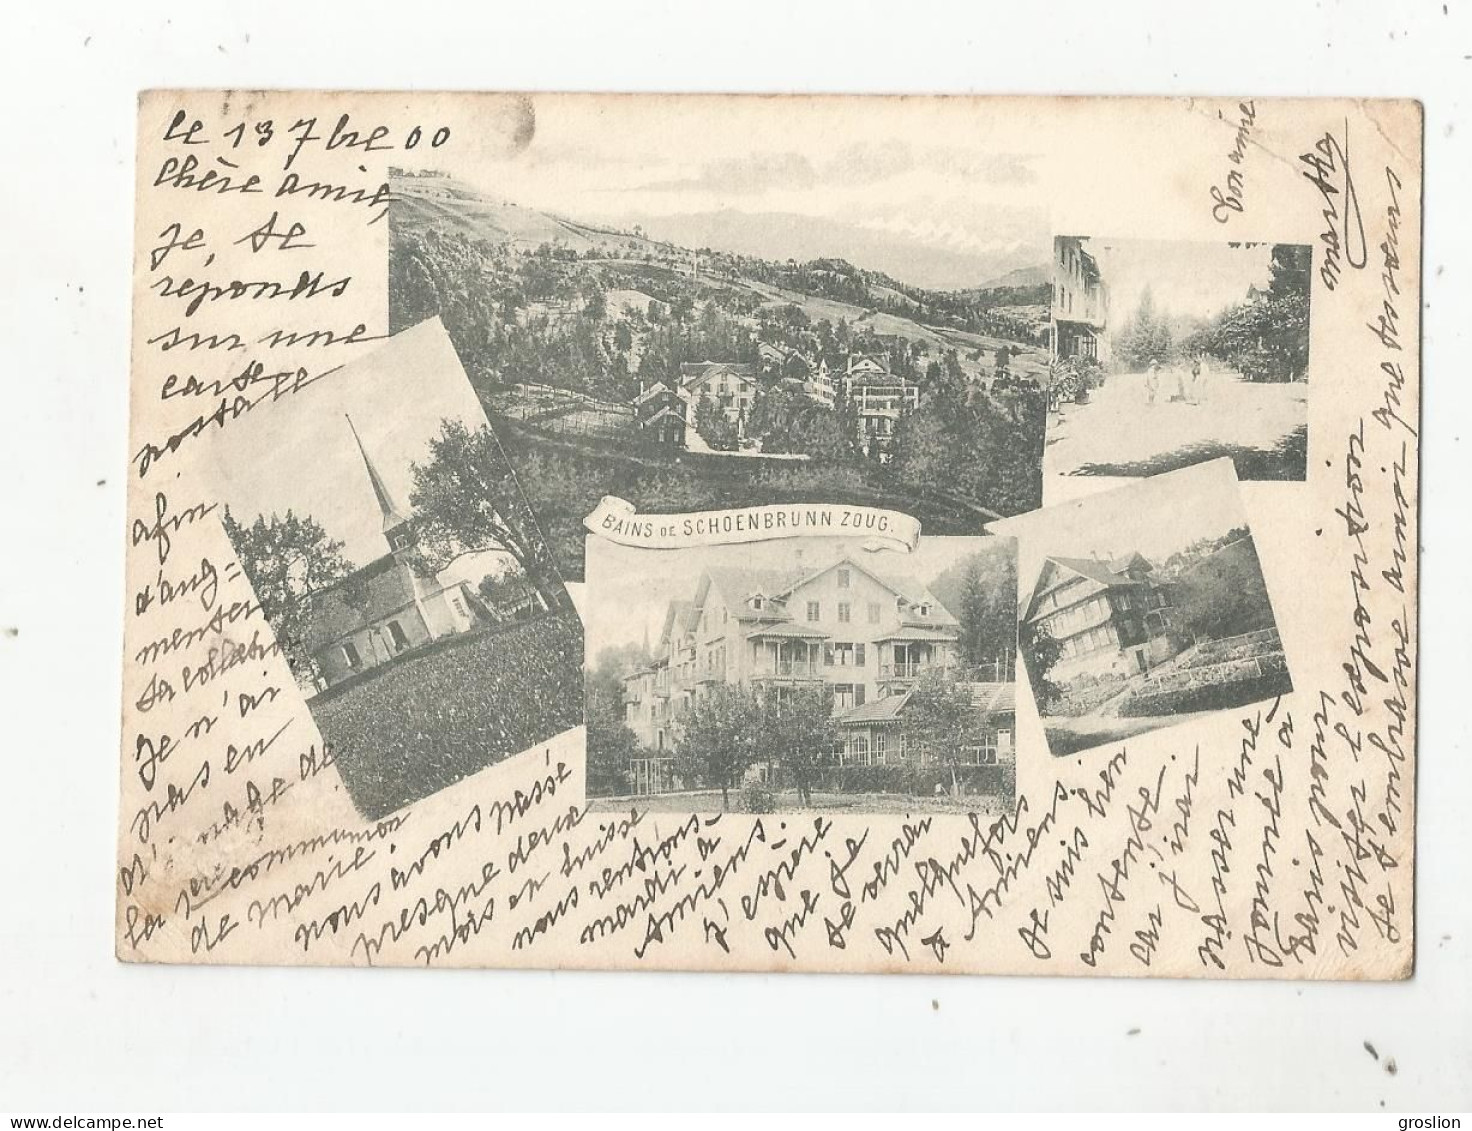 le 13 7bre 00
Chère amie,
je, te
réponds
sur une
carte
postale
afin
d'aug=
menter
ta collection
Je n'ai
pas en
d'image de
la 1ère communion
de Marie.
nous avons passé
presque deux
mois en Suisse
nous rentrons
mardi à
Amiens.
J'espère
que je
te verrai
quelquefois
à Amiens.
Je suis bien
contente
car j'irai
passer une
journée à
Paris pour
visiter l'exposition
Je t'embrasse ainsi que tes sœurs
Ton amie
BAINS DE SCHOENBRUNN ZOUG.
groslion